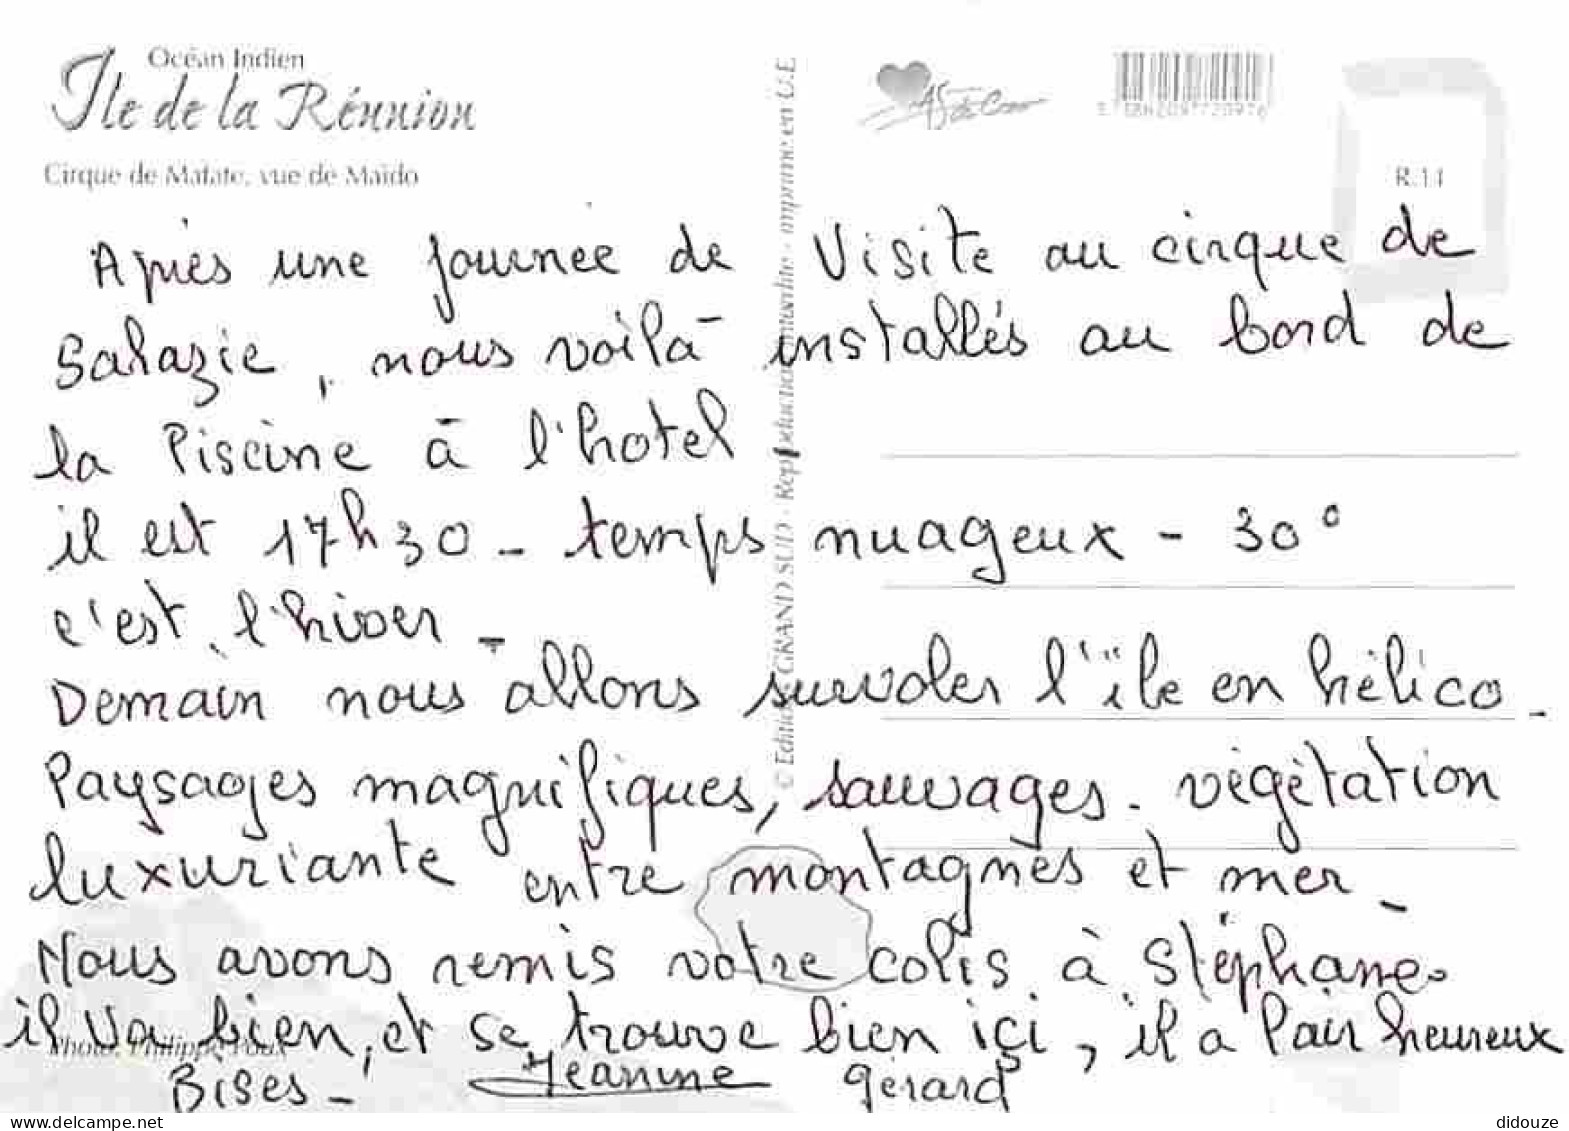 Océan Indien
Ile de la Réunion
Cirque de Mafate, vue de Maïdo
R.11
© Editions GRAND SUD - Reproduction interdite - imprimé en U.E
Après une journée de Visite au cirque de
Salazie, nous voilà installés au bord de
la Piscine à l'hotel.
il est 17h30 - temps nuageux - 30°
c'est l'hiver -
Demain nous allons survoler l'île en hélico -
Paysages magnifiques, sauvages - végétation
luxuriante entre montagnes et mer -
Nous avons remis votre colis à Stéphane.
il va bien, et se trouve bien ici, il a l'air heureux
Photo: Philippe
Bises - Jeanine Gérard
delcampe.net
didouze